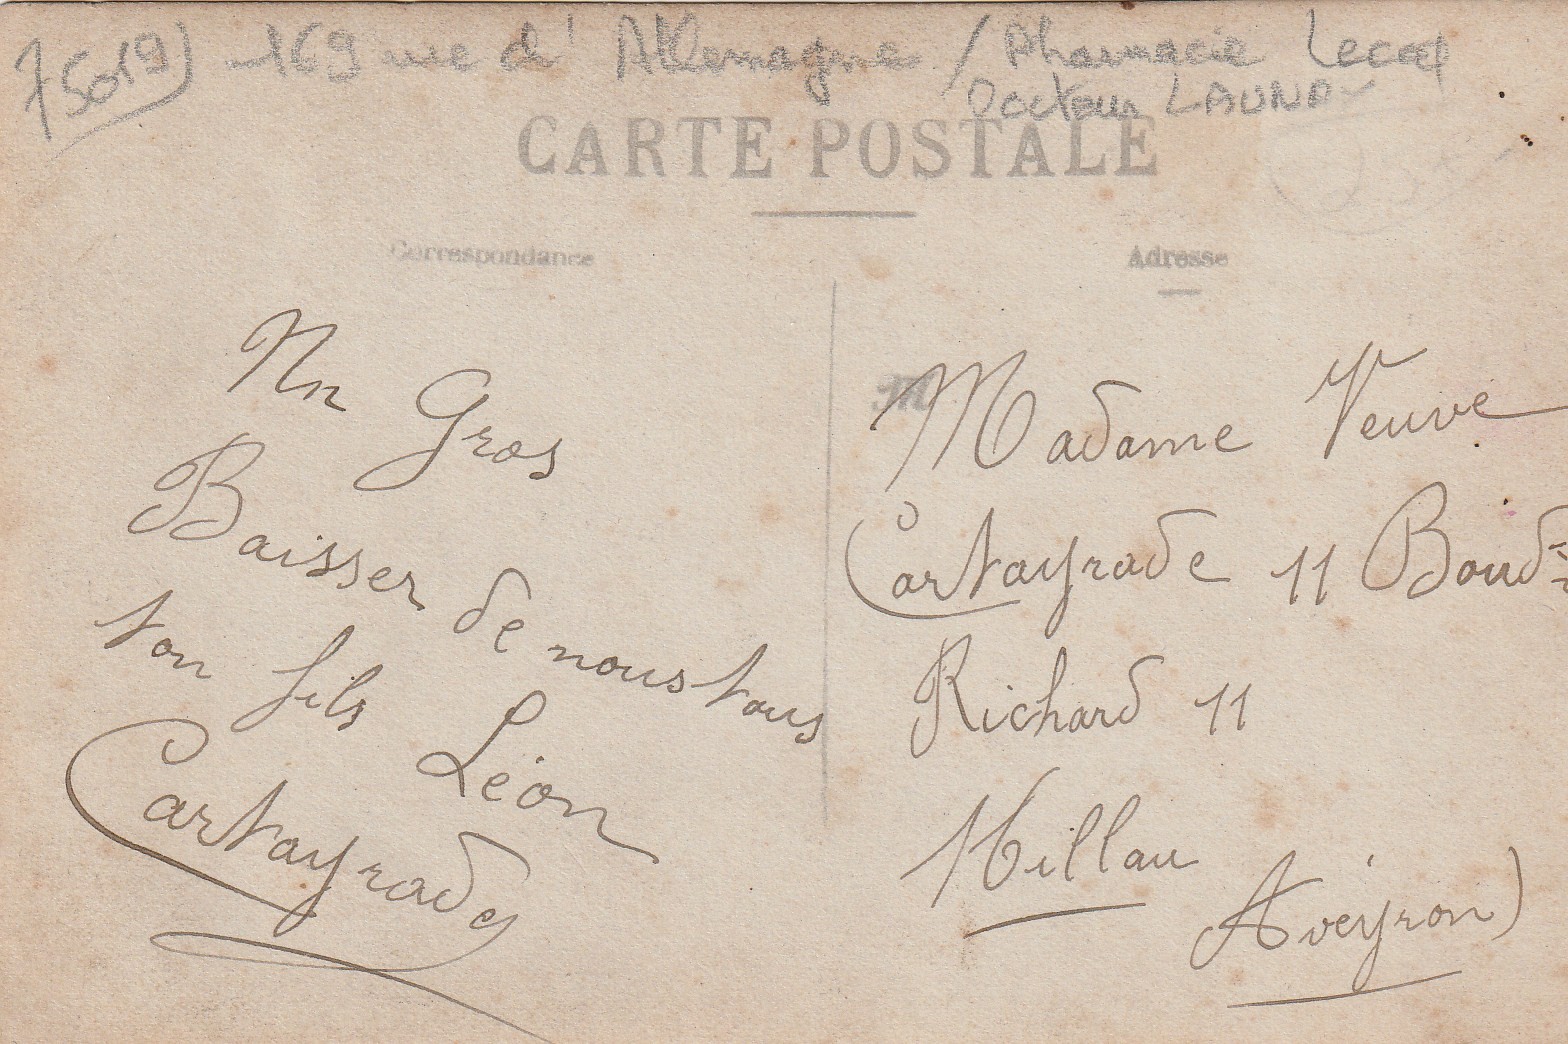 75019) 169 rue d'Allemagne / Pharmacie Lecoq
Docteur LAUNAY
CARTE POSTALE
Correspondance
Adresse
Un Gros
Baisser de nous tous
ton fils Léon
Cartayrade
M
Madame Veuve
Cartayrade 11 Boud
Richard 11
Millau
Aveyron)